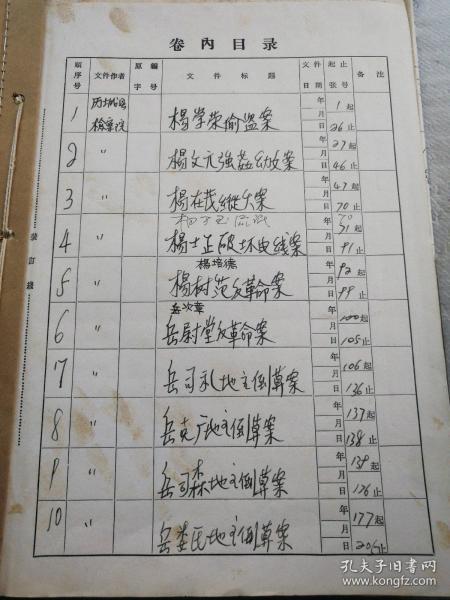 卷內目录
順序号 文件作者 原編字号 文件标题 文件日期 起止张号 备注
1 内城县检察院 楊学荣偷盗案 年月日 1起 26止
2 〃 楊文元強姦幼女案 年月日 27起 46止
3 〃 楊在茂縱火案 年月日 47起 70止
4 〃 楊士正破坏电线案 年月日 71起 91止
楊培德
5 〃 楊树范反革命案 年月日 92起 99止
岳次章
6 〃 岳尉堂反革命案 年月日 100起 105止
7 〃 岳司礼地主倒算案 年月日 106起 136止
8 〃 岳克广地主倒算案 年月日 137起 138止
9 〃 岳司森地主倒算案 年月日 139起 176止
10 〃 岳李氏地主倒算案 年月日 177起 206止
装訂线
孔夫子旧书网
www.kongfz.com